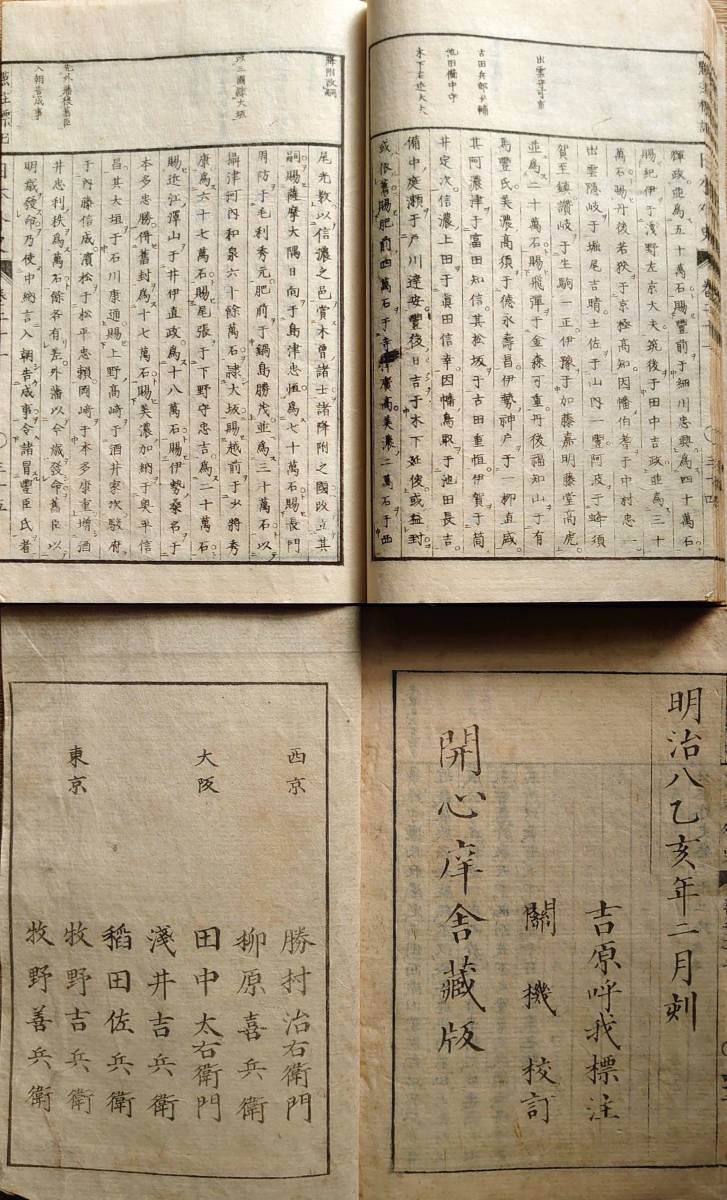 輝政並爲五十萬石賜豐前于細川忠興爲四十萬石
賜紀伊于淺野左京大夫筑後于田中吉政並爲三十
萬石賜丹後若狹于京極高知因幡伯耆于中村忠一
出雲隱岐于堀尾吉晴土佐于山內一豐阿波于蜂須
賀至鎭讚岐于生駒一正伊豫于加藤嘉明藤堂高虎
並爲二十萬石賜飛彈于金森可重丹後福知山于有
馬豐氏美濃高須于德永壽昌伊勢神戶于一柳直盛
其阿濃津于富田知信其松坂于古田重恒伊賀于筒
井定次信濃上田于眞田信幸因幡鳥取于池田長吉
備中庭瀬于戶川達安豐後日吉于木下延俊或益封
或依舊賜肥前四萬石于寺澤廣高美濃二萬石于西
出雲守可重
古田兵部少輔
池田備中守
木下右近大夫
尾光敎以信濃之邑賞木曾諸士諸降附之國政立其
嗣賜薩摩大隅日向于島津忠恒爲七十萬石賜長門
周防于毛利秀元肥前于鍋島勝茂並爲三十萬石以
攝津河內和泉六十餘萬石隷大坂賜越前于少將秀
康爲六十七萬石賜尾張于下野守忠吉爲二十萬石
賜近江澤山于井伊直政爲十八萬石賜伊勢桑名于
本多忠勝倂舊封爲十七萬石賜美濃加納于奧平信
昌其大垣于石川康通賜上野高崎于酒井家次駿府
于內藤信成濱松于松平忠賴岡崎于本多康重增酒
井忠利秩爲萬石餘各有差外藩以今歲發命舊臣以
明歲發命乃使中納言入朝告成事令諸冒豐臣氏者
先外藩後舊臣
入朝告成事
明治八乙亥年二月刻
吉原呼我標注
關機校訂
開心庠舍藏版
西京
勝村治右衛門
大阪
柳原喜兵衛
田中太右衛門
淺井吉兵衛
東京
稻田佐兵衛
牧野吉兵衛
牧野善兵衛